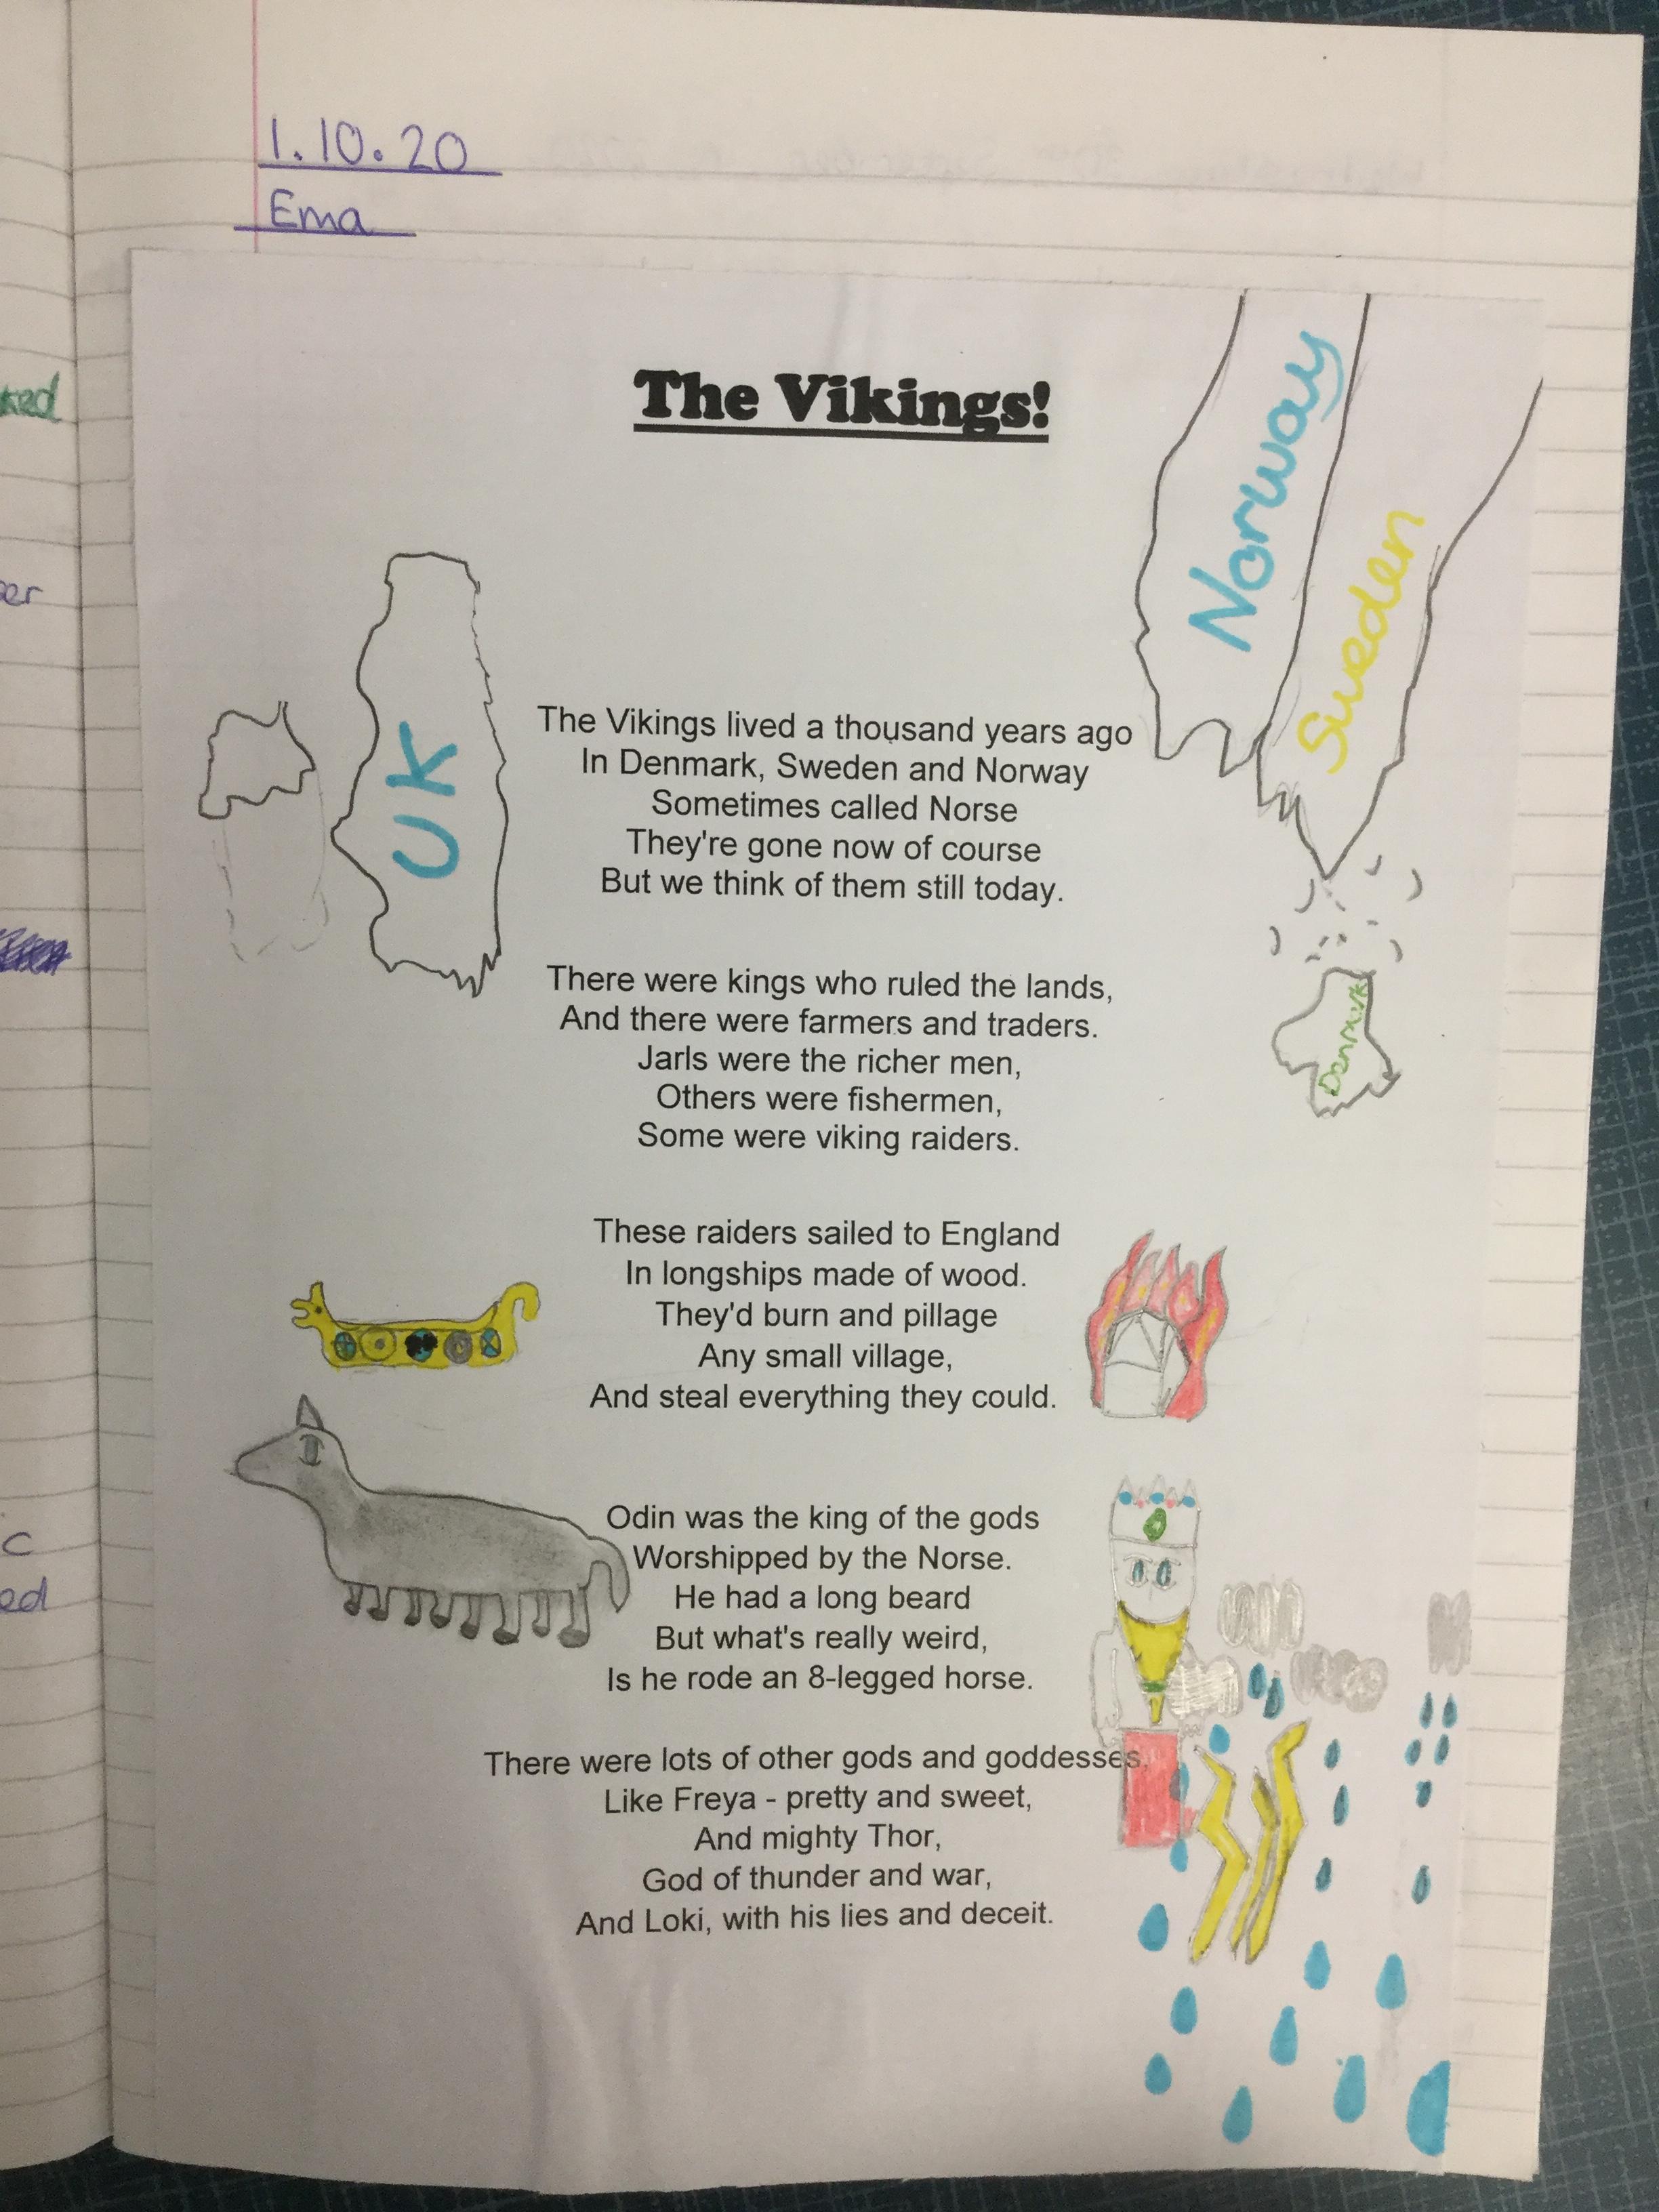 ked
er
c
ed
1.10.20
Ema
The Vikings!
Norway
Sweden
UK
Denmark
The Vikings lived a thousand years ago
In Denmark, Sweden and Norway
Sometimes called Norse
They're gone now of course
But we think of them still today.
There were kings who ruled the lands,
And there were farmers and traders.
Jarls were the richer men,
Others were fishermen,
Some were viking raiders.
These raiders sailed to England
In longships made of wood.
They'd burn and pillage
Any small village,
And steal everything they could.
Odin was the king of the gods
Worshipped by the Norse.
He had a long beard
But what's really weird,
Is he rode an 8-legged horse.
There were lots of other gods and goddesses,
Like Freya - pretty and sweet,
And mighty Thor,
God of thunder and war,
And Loki, with his lies and deceit.